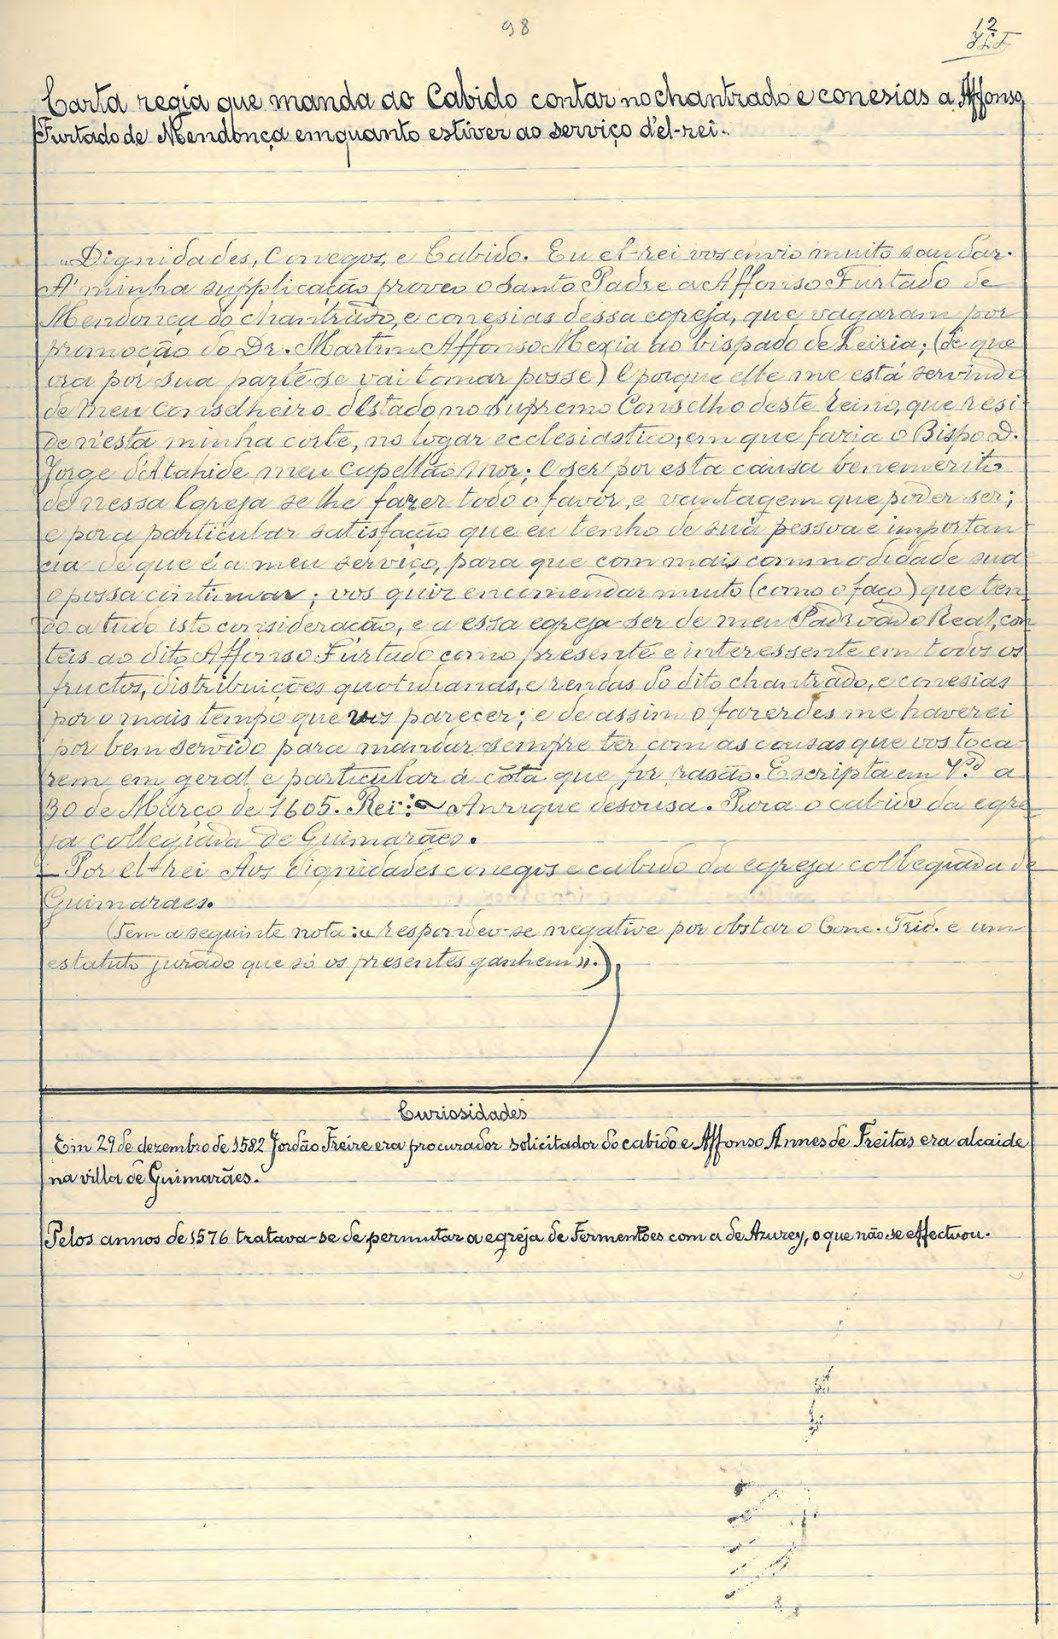 98
12
Carta regia que manda ao Cabido contar no chantrado e conesias a Affonso
Furtado de Mendonça emquanto estiver ao serviço d'el-rei.
"Dignidades, Conegos, e Cabido. Eu el-rei vos envio muito saudar.
Á minha supplicação proveo o Santo Padre a Affonso Furtado de
Mendonça do chantrado, e conesias dessa egreja, que vagaram por
promoção do Dr. Martim Affonso Mexia ao bispado de Leiria; (de que
ora por sua parte se vai tomar posse) E porque elle me está servindo
de meu conselheiro d'Estado no Supremo Conselho deste Reino, que resi-
de n'esta minha corte, no logar ecclesiastico, em que faria o Bispo D.
Jorge d'Atahide meu capellão mor; e ser por esta causa benemerito
de nessa Egreja se lhe fazer todo o favor, e vantagem que poder ser;
e por a particular satisfação que eu tenho de sua pessoa e importan-
cia de que é a meu serviço, para que com mais commodidade sua
o possa continuar; vos quiz encomendar muito (como o faço) que ten-
do a tudo isto consideração, e a essa egreja ser de meu Padroado Real, con-
teis ao dito Affonso Furtado como presente e interessente em todos os
fructos, distribuições quotidianas, e rendas do dito chantrado, e conesias
por o mais tempo que vos parecer; e de assim o fazerdes me haverei
por bem servido para mandar sempre ter com as cousas que vos toca-
rem em geral e particular á cõta que for rasão. Escripta em V.ᵈ a
30 de Março de 1605. Rei :~ Anrique de sousa. Para o cabido da egre-
ja collegiada de Guimarães.
— Por el-rei Aos dignidades conegos e cabido da egreja collegiada de
Guimaraes.
(Tem a seguinte nota: «Respondeo-se negative por obstar o Conc. Trid. e um
estatuto jurado que só os presentes ganhem».)
Curiosidades
Em 29 de dezembro de 1582 Jordão Freire era procurador solicitador do cabido e Affonso Annes de Freitas era alcaide
na villa de Guimarães.
Pelos annos de 1576 tratava-se de permutar a egreja de Fermentões com a de Azurey, o que não se effectuou.